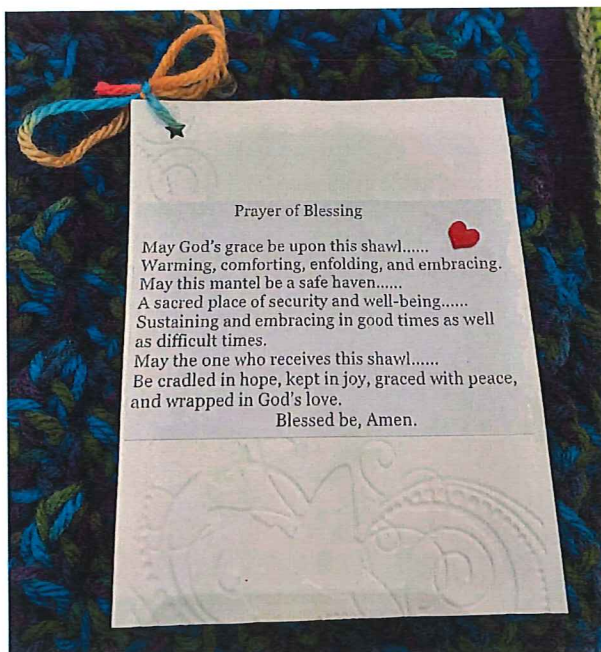 Prayer of Blessing
May God's grace be upon this shawl......
Warming, comforting, enfolding, and embracing.
May this mantel be a safe haven......
A sacred place of security and well-being......
Sustaining and embracing in good times as well
as difficult times.
May the one who receives this shawl......
Be cradled in hope, kept in joy, graced with peace,
and wrapped in God's love.
Blessed be, Amen.